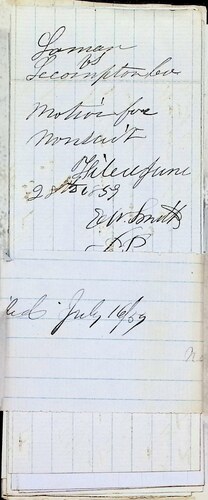 Loman
vs
Lecompton Co
Motion for
Nonsuit
Filed June
28th 1859
E W Smith
J.P.
led July 16/59